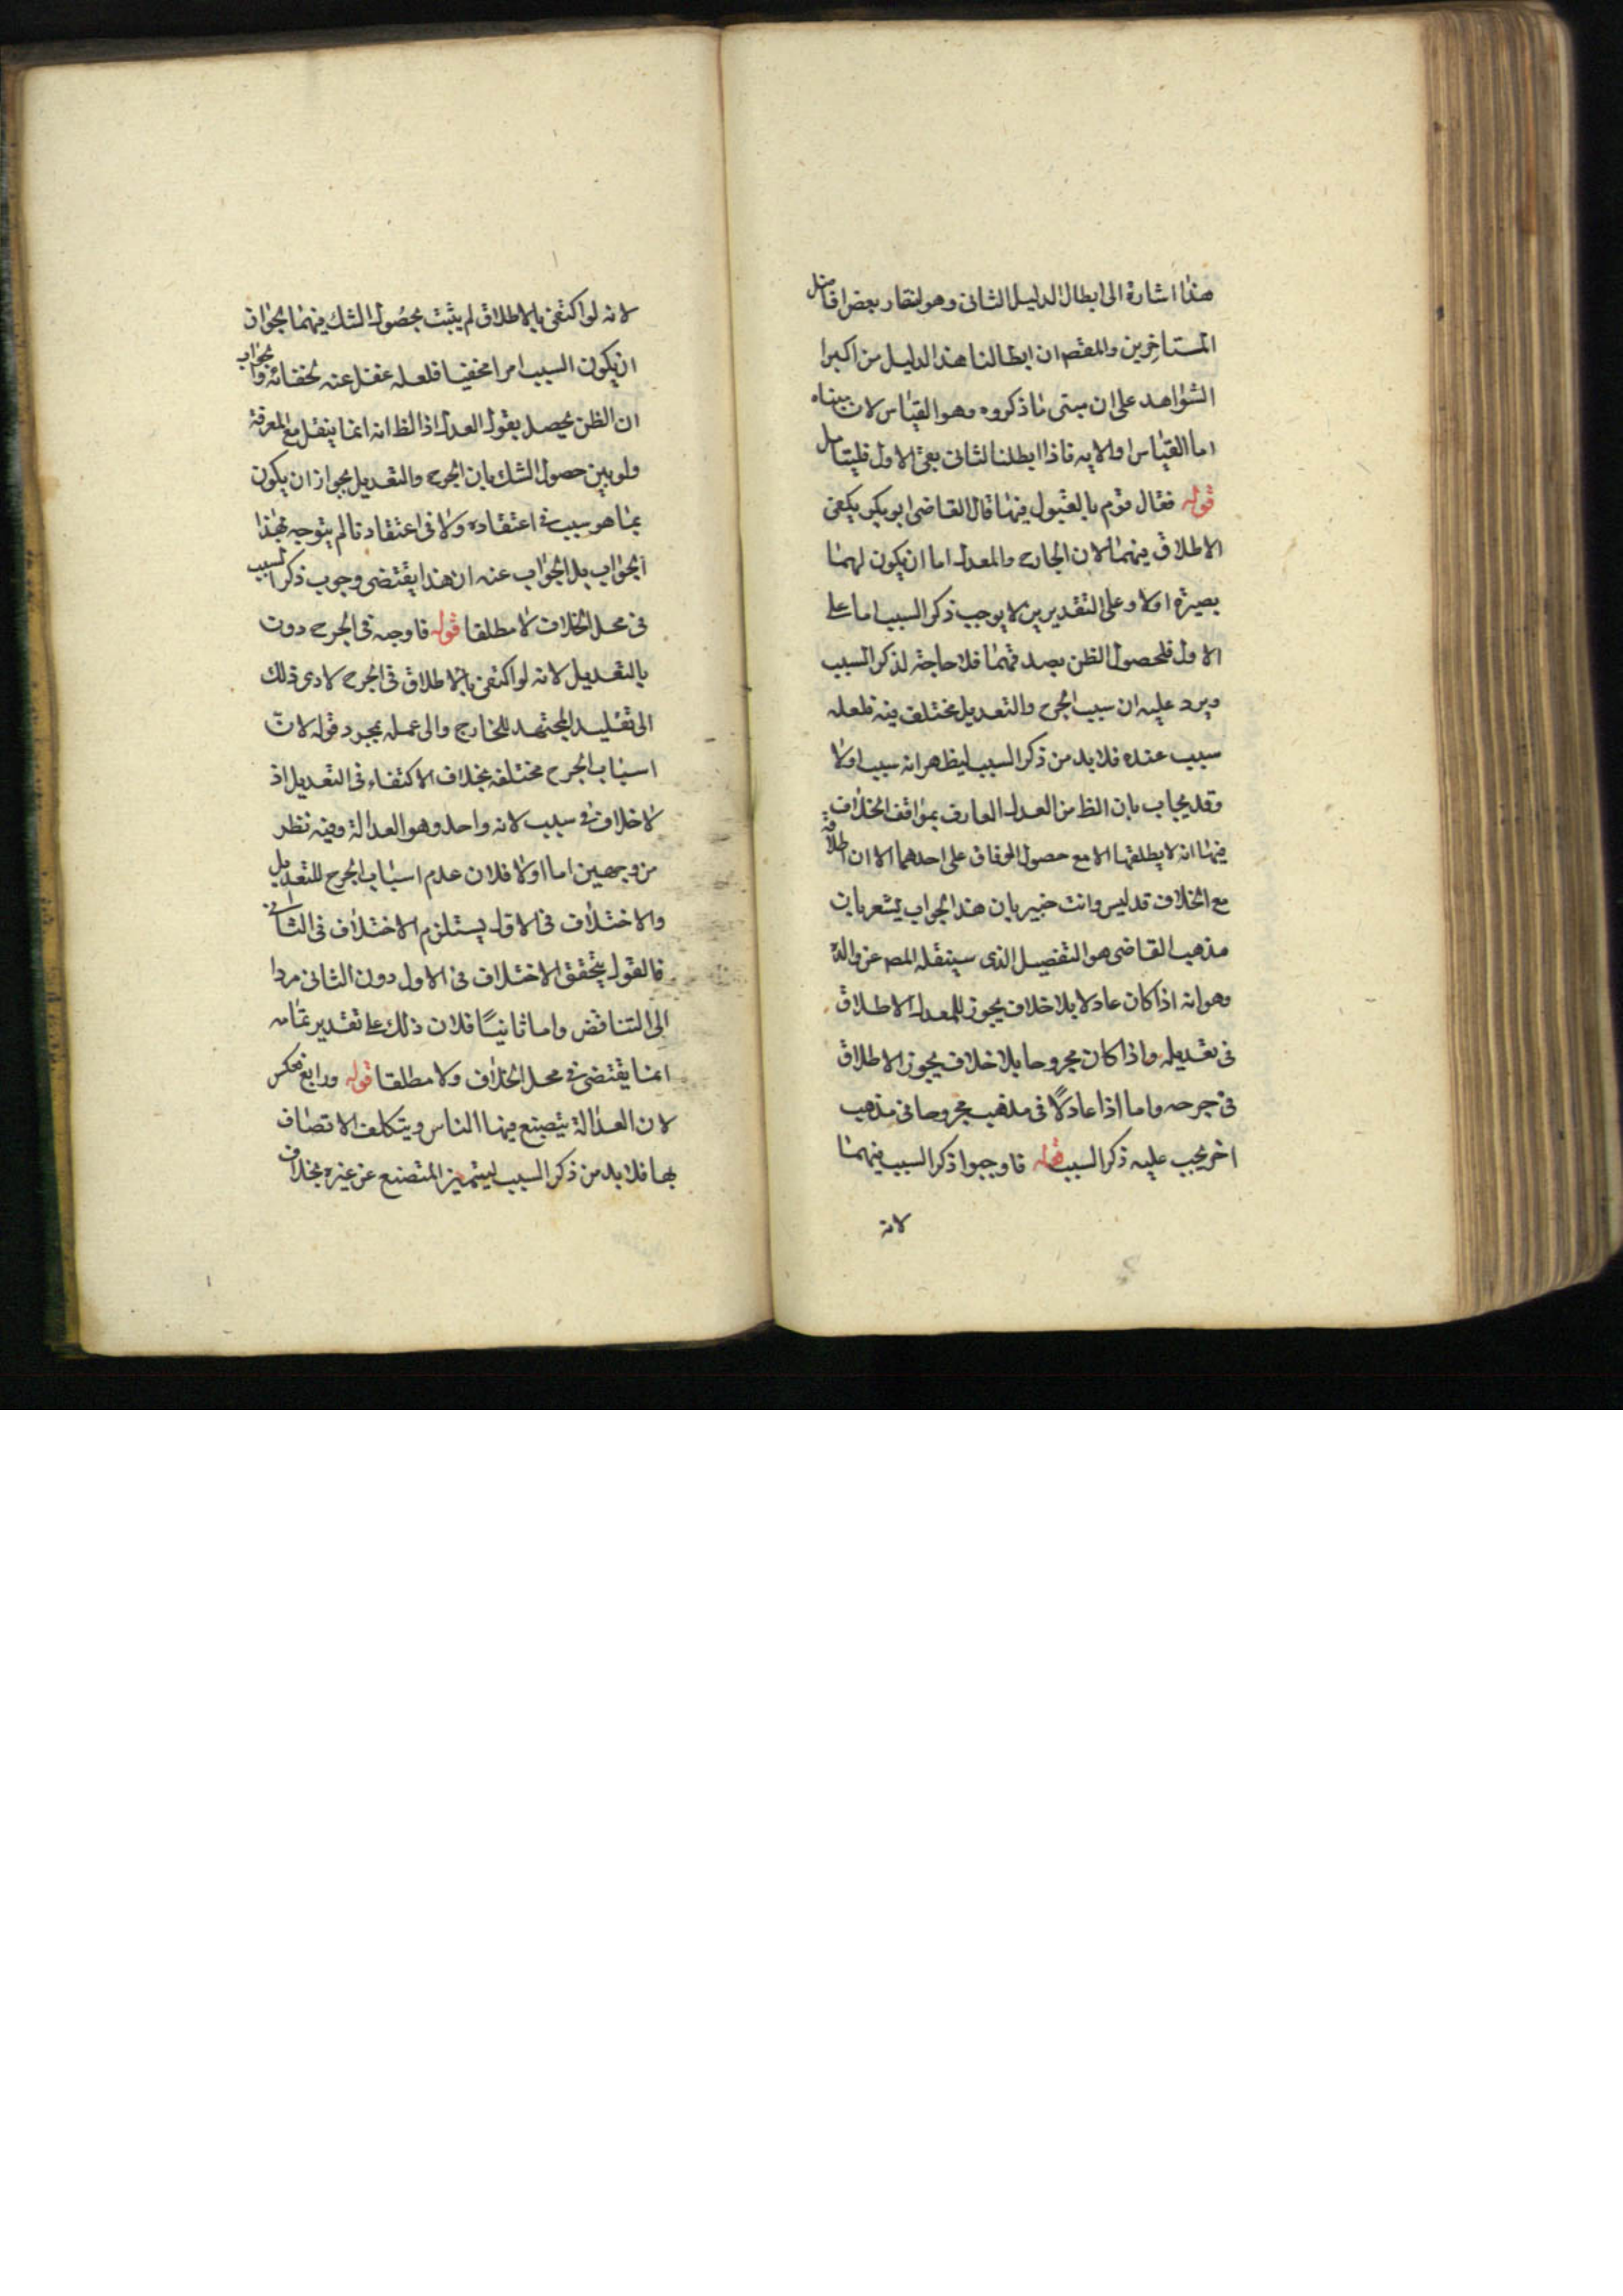 هذا اشارة الى ابطال الدليل الثانى وهو لبعض افاضل
المتاخرين والمقصم ان ابطالنا هذا الدليل من اكبر
الشواهد على ان مبنى ما ذكروه وهو القياس لان مبناه
اما القياس او الايه فاذا ابطلنا الثانى بقى الاول فليتامل
قوله فقال قوم بالقبول فيها قال القاضى ابو بكر يكفى
الاطلاق فيهما لان الجارح والمعدل اما ان يكون لهما
بصيرة اولا وعلى التقديرين لا يوجب ذكر السبب اما على
الاول فلحصول الظن بصدقهما فلا حاجة لذكر السبب
ويرد عليه ان سبب الجرح والتعديل مختلف فيه فلعله
سبب عنده فلا بد من ذكر السبب ليظهر انه سبب اولا
وقد يجاب بان الظ من العدل العارف بمواقف الخلاف
فيها انه لا يطلقها الا مع حصول الوفاق على احدهما الا ان اطلاقه
مع الخلاف تدليس وانت خبير بان هذا الجواب يشعر بان
مذهب القاضى هو التفصيل الذى سينقله المص عن والده
وهو انه اذا كان عادلا بلا خلاف يجوز للمعدل الاطلاق
فى تعديله واذا كان مجروحا بلا خلاف يجوز الاطلاق
فى جرحه واما اذا عادلاً فى مذهب مجروحا فى مذهب
اخر يجب عليه ذكر السبب قوله فاوجبوا ذكر السبب فيهما
لانه
لانه لو اكتفى بالاطلاق لم يثبت بحصول الشك فيهما لجواز
ان يكون السبب امرا مخفيا فلعله غفل عنه لخفائه والجواب
ان الظن يحصل بقول العدل اذ الظ انه انما ينقل مع المعرفة
ولو بين حصول الشك بان الجرح والتعديل يجواز ان يكون
بما هو سبب فى اعتقاده ولا فى اعتقادنا لم يتوجه بهذا
الجواب بل الجواب عنه ان هذا يقتضى وجوب ذكر السبب
فى محل الخلاف لا مطلقا قوله فاوجبه فى الجرح دون
بالتعديل لانه لو اكتفى بالاطلاق فى الجرح لادى ذلك
الى تقليد المجتهد للخارج والى عمله بمجرد قوله لان
اسباب الجرح مختلفه بخلاف الاكتفاء فى التعديل اذ
لا خلاف فى سبب لانه واحد وهو العدالة وفيه نظر
من وجهين اما اولا فلان عدم اسباب الجرح للتعديل
والاختلاف فى الاول يستلزم الاختلاف فى الثانى
فالقول بتحقق الاختلاف فى الاول دون الثانى مردا
الى التناقض واما ثانيًا فلان ذلك على تقدير تمامه
انما يقتضى فى محل الخلاف ولا مطلقا قوله ورابع عكس
لان العدالة يتصنع فيها الناس ويتكلف الاتصاف
بها فلا بد من ذكر السبب ليتميز المتصنع عن غيره بخلاف